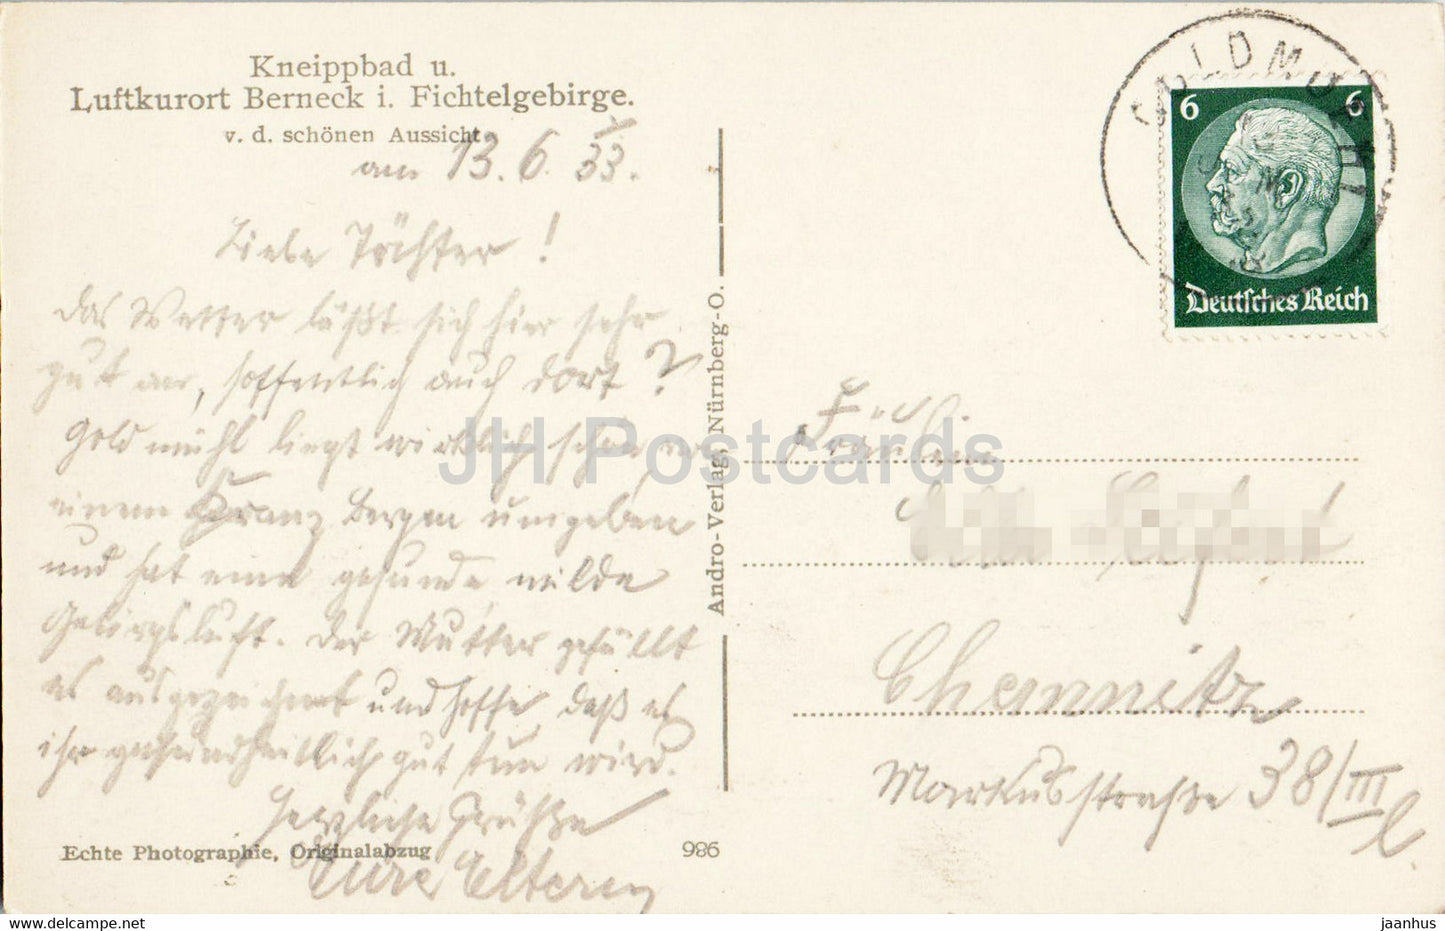 Kneippbad u.
Luftkurort Berneck i. Fichtelgebirge.
v. d. schönen Aussicht
am 13.6.33.
Liebe Töchter!
Das Wetter läßt sich hier sehr
gut an, hoffentlich auch dort?
Goldmühl liegt wirklich schön, von
einem Kranz Bergen umgeben
und hat eine gesunde milde
Gebirgsluft. Der Mutter gefällt
es ausgezeichnet und hoffe, daß es
ihr gesundheitlich gut tun wird.
Herzliche Grüße
Eure Eltern
Echte Photographie, Originalabzug
986
Andro-Verlag, Nürnberg-O.
GOLDMÜHL
6 6
Deutsches Reich
Fräulein
Chemnitz
Markusstraße 38/III l.
JH Postcards
hip-postcard-store-jaanhus.com
jaanhus